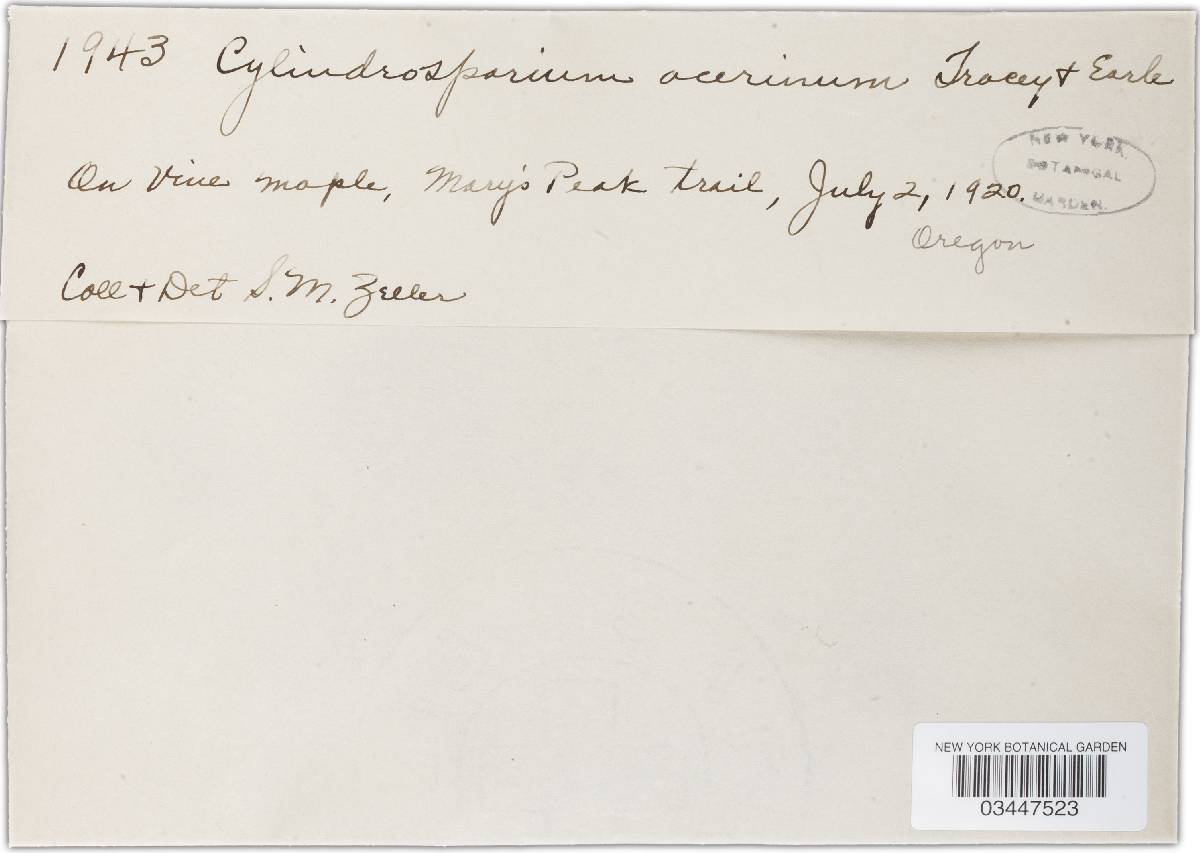 1943 Cylindrosporium acerinum Tracey + Earle
NEW YORK
BOTANICAL
GARDEN.
On Vine maple, Mary's Peak trail, July 2, 1920.
Oregon
Coll + Det S. M. Zeller
NEW YORK BOTANICAL GARDEN
03447523